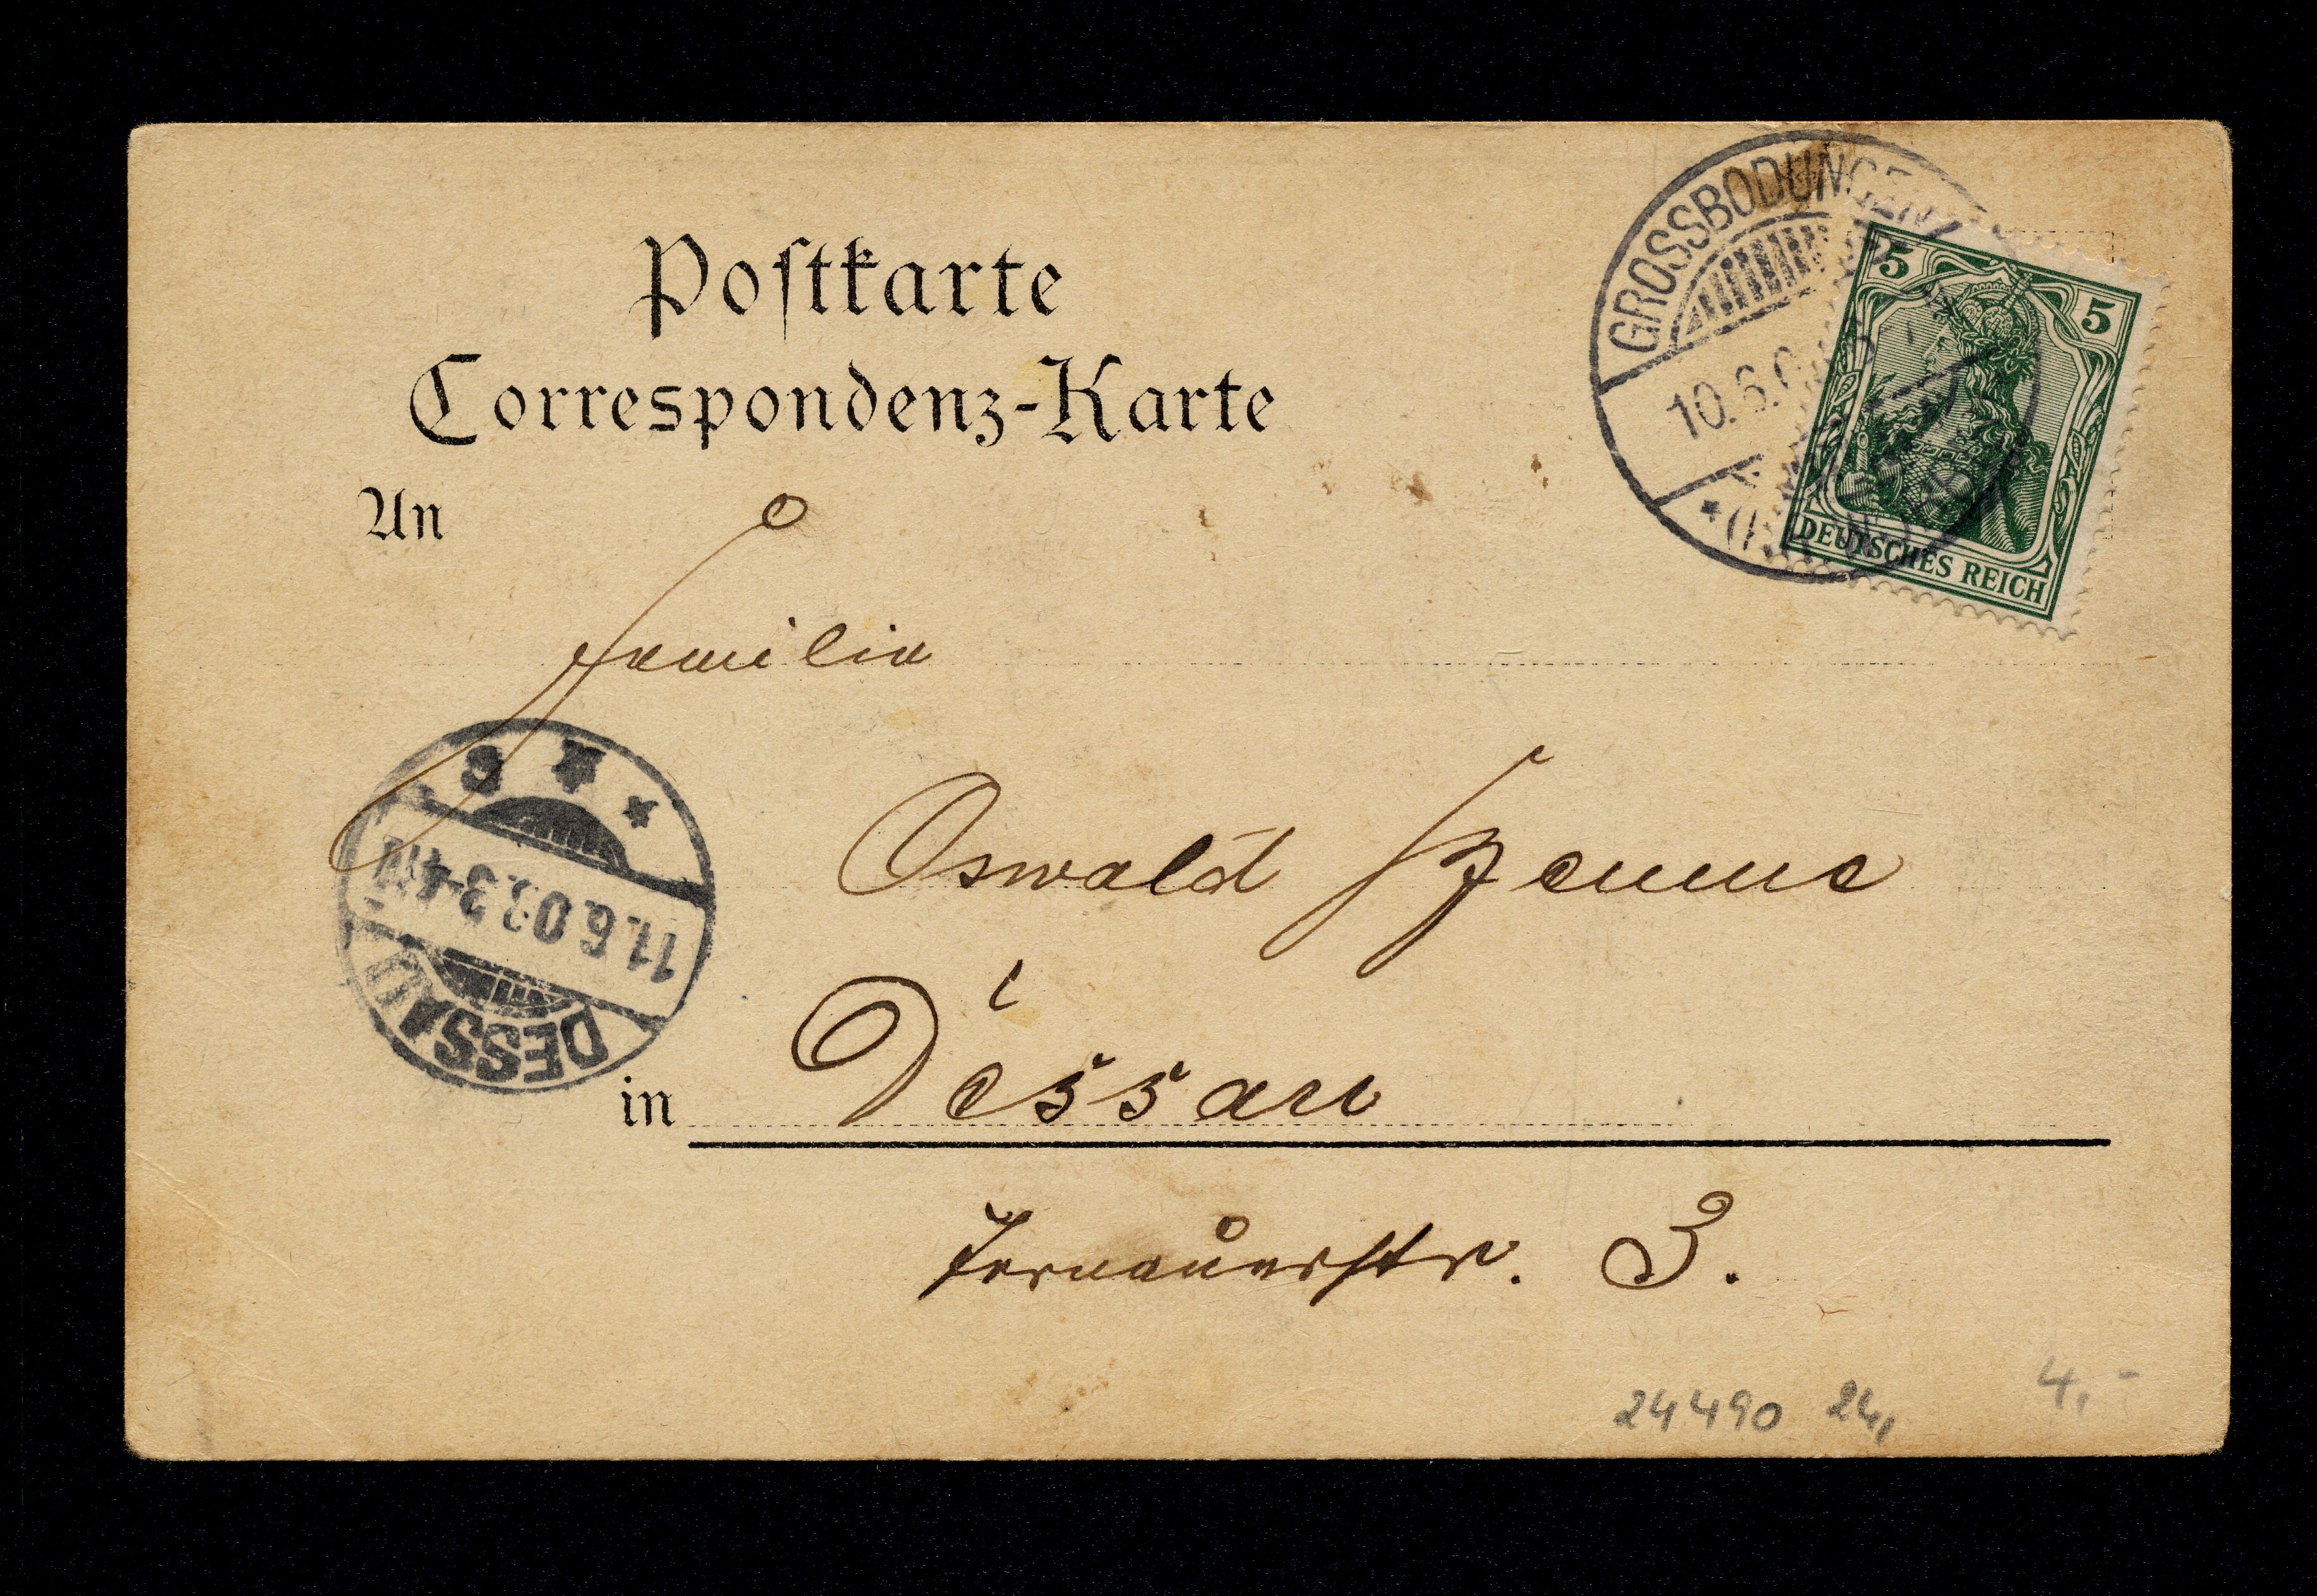 Postkarte
Correspondenz-Karte
GROSSBODUNGEN
10.6.0
5 5
DEUTSCHES REICH
An
Familie
Oswald
DESSAU
11.6.0 3-4N
in Dessau
3.
24490 24, 4,-